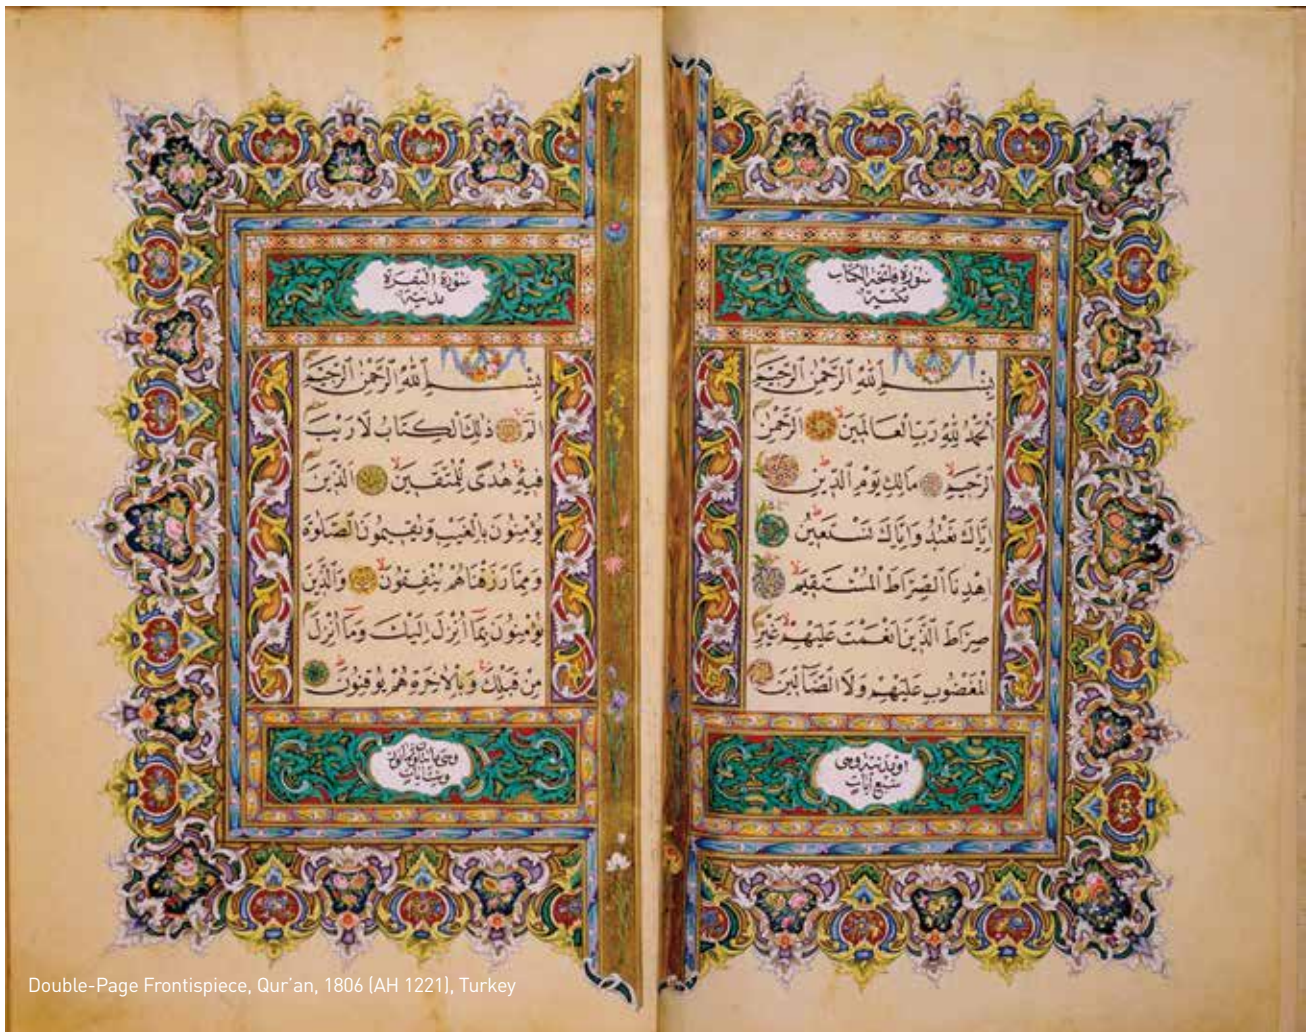 سُورَةُ فَاتِحَةِ الْكِتَابِ
مَكِّيَّةٌ
بِسْمِ اللّٰهِ الرَّحْمٰنِ الرَّحِيمِ
اَلْحَمْدُ لِلّٰهِ رَبِّ الْعَالَمِينَ الرَّحْمٰنِ
الرَّحِيمِ مَالِكِ يَوْمِ الدِّينِ
اِيَّاكَ نَعْبُدُ وَاِيَّاكَ نَسْتَعِينُ
اِهْدِنَا الصِّرَاطَ الْمُسْتَقِيمَ
صِرَاطَ الَّذِينَ اَنْعَمْتَ عَلَيْهِمْ غَيْرِ
الْمَغْضُوبِ عَلَيْهِمْ وَلَا الضَّٓالِّينَ
او مدنية وهى
سبع ايات
سُورَةُ الْبَقَرَةِ
مَدَنِيَّةٌ
بِسْمِ اللّٰهِ الرَّحْمٰنِ الرَّحِيمِ
الٓمٓ ذٰلِكَ الْكِتَابُ لَا رَيْبَ
فِيهِ هُدًى لِلْمُتَّقِينَ اَلَّذِينَ
يُؤْمِنُونَ بِالْغَيْبِ وَيُقِيمُونَ الصَّلٰوةَ
وَمِمَّا رَزَقْنَاهُمْ يُنْفِقُونَ وَالَّذِينَ
يُؤْمِنُونَ بِمَٓا اُنْزِلَ اِلَيْكَ وَمَٓا اُنْزِلَ
مِنْ قَبْلِكَ وَبِالْاٰخِرَةِ هُمْ يُوقِنُونَ
وهى مائتان
وست ايات
Double-Page Frontispiece, Qur'an, 1806 (AH 1221), Turkey